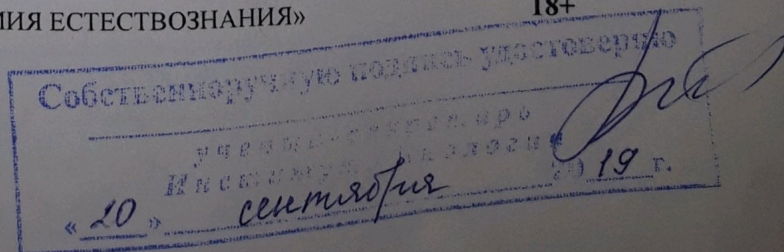 МИЯ ЕСТЕСТВОЗНАНИЯ»
18+
Собственноручную подпись удостоверяю
Институт
« 20 » сентября 2019 г.